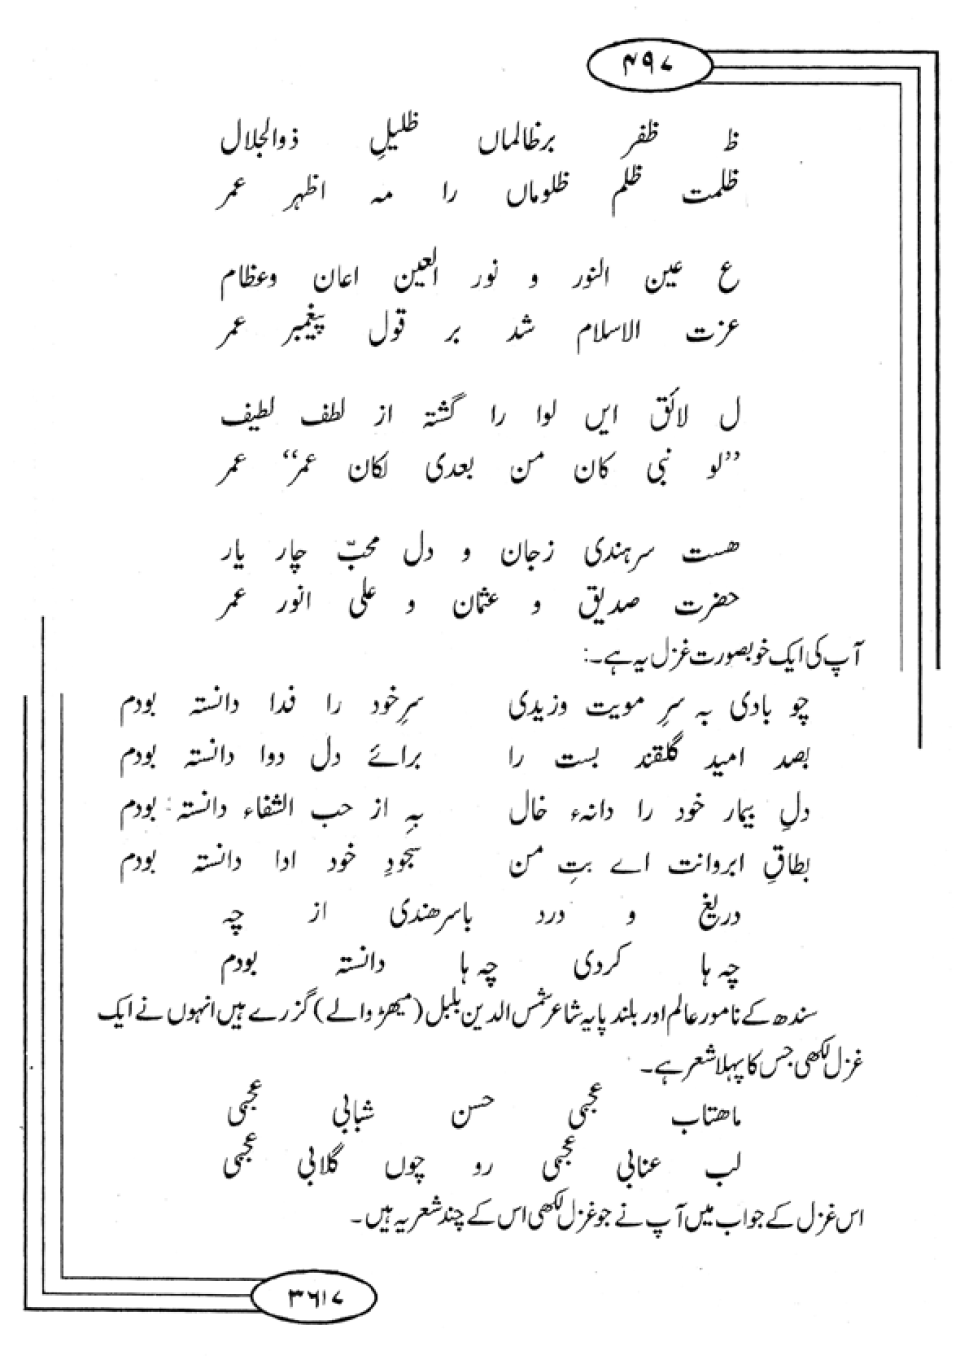 ۴۹۷
ظ ظفر برظالماں ظلیلِ ذوالجلال
ظلمت ظلم ظلوماں را مہ اظہر عمر
ع عین النور و نور العین اعان وعظام
عزت الاسلام شد بر قول پیغمبر عمر
ل لائق ایں لوا را گشتہ از لطف لطیف
”لو نبی کان من بعدی لکان عمر“ عمر
ھست سرہندی زجان و دل محبّ چار یار
حضرت صدیق و عثمان و علی انور عمر
آپ کی ایک خوبصورت غزل یہ ہے۔:
چو بادی بہ سرِ مویت وزیدی سرِخود را فدا دانستہ بودم
بصد امید گلقند بست را برائے دل دوا دانستہ بودم
دلِ بیمار خود را دانہء خال بہِ از حب الشفاء دانستہ بودم
بطاقِ ابروانت اے بتِ من سجودِ خود ادا دانستہ بودم
دریغ و درد باسرھندی از چہ
چہ ہا کردی چہ ہا دانستہ بودم
سندھ کے نامور عالم اور بلند پایہ شاعر شمس الدین بلبل (میھڑ والے) گزرے ہیں انہوں نے ایک
غزل لکھی جس کا پہلا شعر ہے۔
ماھتاب عجمی حسن شبابی عجمی
لب عنابی عجمی رو چوں گلابی عجمی
اس غزل کے جواب میں آپ نے جو غزل لکھی اس کے چند شعر یہ ہیں۔